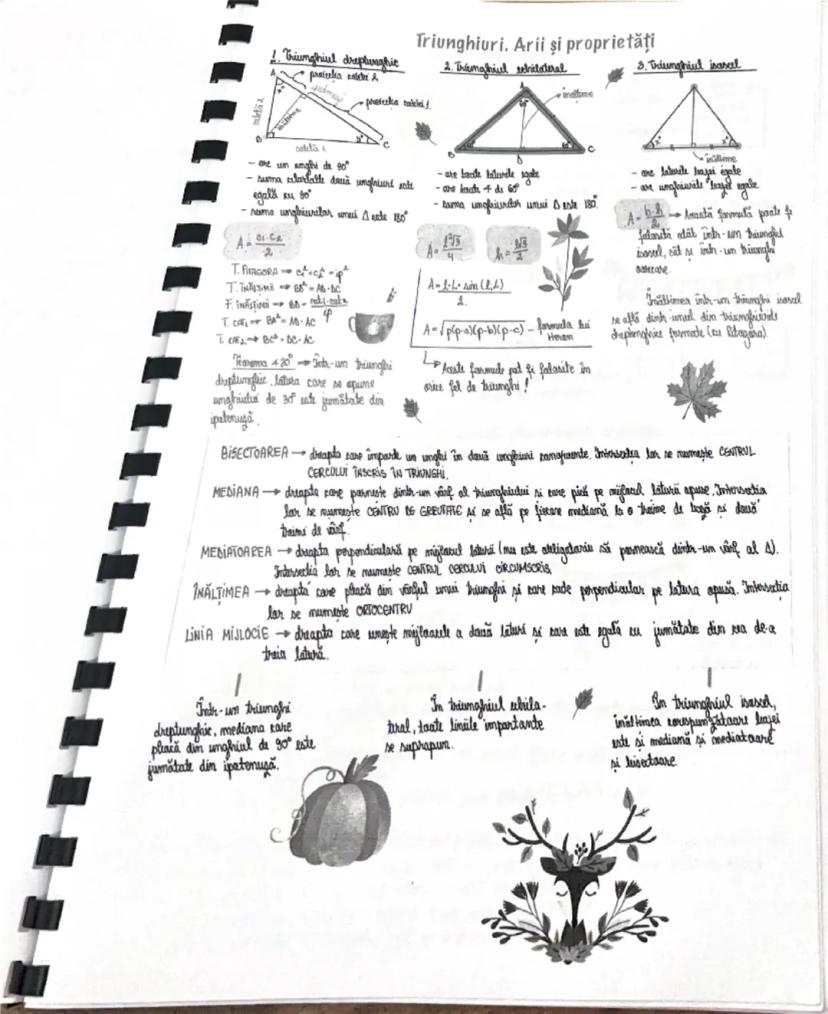 Triunghiuri. Arii și proprietăți
1. Triunghiul dreptunghic
A
proiecția catetei 2
ipotenuză
proiecția catetei 1
catetă 2
înălțime
B
catetă 1
C
- are un unghi de 90°
- suma celorlalte două unghiuri este
egală cu 90°
- suma unghiurilor unui Δ este 180°
A = c₁·c₂/2
T. PITAGORA ⇒ c₁² + c₂² = ip²
T. ÎNĂLȚIMII ⇒ BD² = AD·DC
F. ÎNĂLȚIMII ⇒ BD = cat₁·cat₂/ip
T. CAT₁ ⇒ BA² = AD·AC
T. CAT₂ ⇒ BC² = DC·AC
Teorema ∢30° ⇒ Într-un triunghi
dreptunghic, latura care se opune
unghiului de 30° este jumătate din
ipotenuză.
2. Triunghiul echilateral
A
înălțime
60°
B
D
C
- are toate laturile egale
- are toate ∢ de 60°
- suma unghiurilor unui Δ este 180°
A = l²√3/4
h = l√3/2
A = l·L·sin(l,L)/2
A = √p(p-a)(p-b)(p-c) - formula lui
Heron
Aceste formule pot fi folosite în
orice fel de triunghi!
3. Triunghiul isoscel
înălțime
- are laturile bazei egale
- are unghiurile bazei egale
A = b·h/2 → Această formulă poate fi
folosită atât într-un triunghi
isoscel, cât și într-un triunghi
oarecare.
Înălțimea într-un triunghi isoscel
se află dintr-unul din triunghiurile
dreptunghice formate (cu Pitagora).
BISECTOAREA → dreapta care împarte un unghi în două unghiuri congruente. Intersecția lor se numește CENTRUL
CERCULUI ÎNSCRIS ÎN TRIUNGHI.
MEDIANA → dreapta care pornește dintr-un vârf al triunghiului și care pică pe mijlocul laturii opuse. Intersecția
lor se numește CENTRU DE GREUTATE și se află pe fiecare mediană la o treime de bază și două
treimi de vârf.
MEDIATOAREA → dreapta perpendiculară pe mijlocul laturii (nu este obligatoriu să pornească dintr-un vârf al Δ).
Intersecția lor se numește CENTRUL CERCULUI CIRCUMSCRIS.
ÎNĂLȚIMEA → dreapta care pleacă din vârful unui triunghi și care cade perpendicular pe latura opusă. Intersecția
lor se numește ORTOCENTRU
LINIA MIJLOCIE → dreapta care unește mijloacele a două laturi și care este egală cu jumătate din cea de-a
treia latură.
Într-un triunghi
dreptunghic, mediana care
pleacă din unghiul de 90° este
jumătate din ipotenuză.
În triunghiul echila-
teral, toate liniile importante
se suprapun.
În triunghiul isoscel,
înălțimea corespunzătoare bazei
este și mediană și mediatoare
și bisectoare.